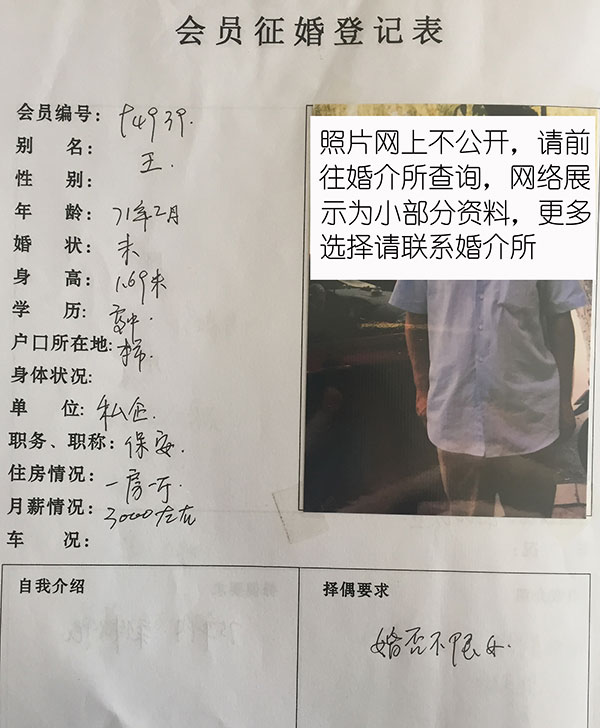 会员征婚登记表
会员编号: f4939.
别 名: 王.
性 别:
年 龄: 71年2月
婚 状: 未
身 高: 1.69米
学 历: 高中.
户口所在地: 本市.
身体状况:
单 位: 私企.
职务、职称: 保安.
住房情况: 一房一厅.
月薪情况: 3000左右
车 况:
照片网上不公开，请前
往婚介所查询，网络展
示为小部分资料，更多
选择请联系婚介所
自我介绍
择偶要求
婚否不限